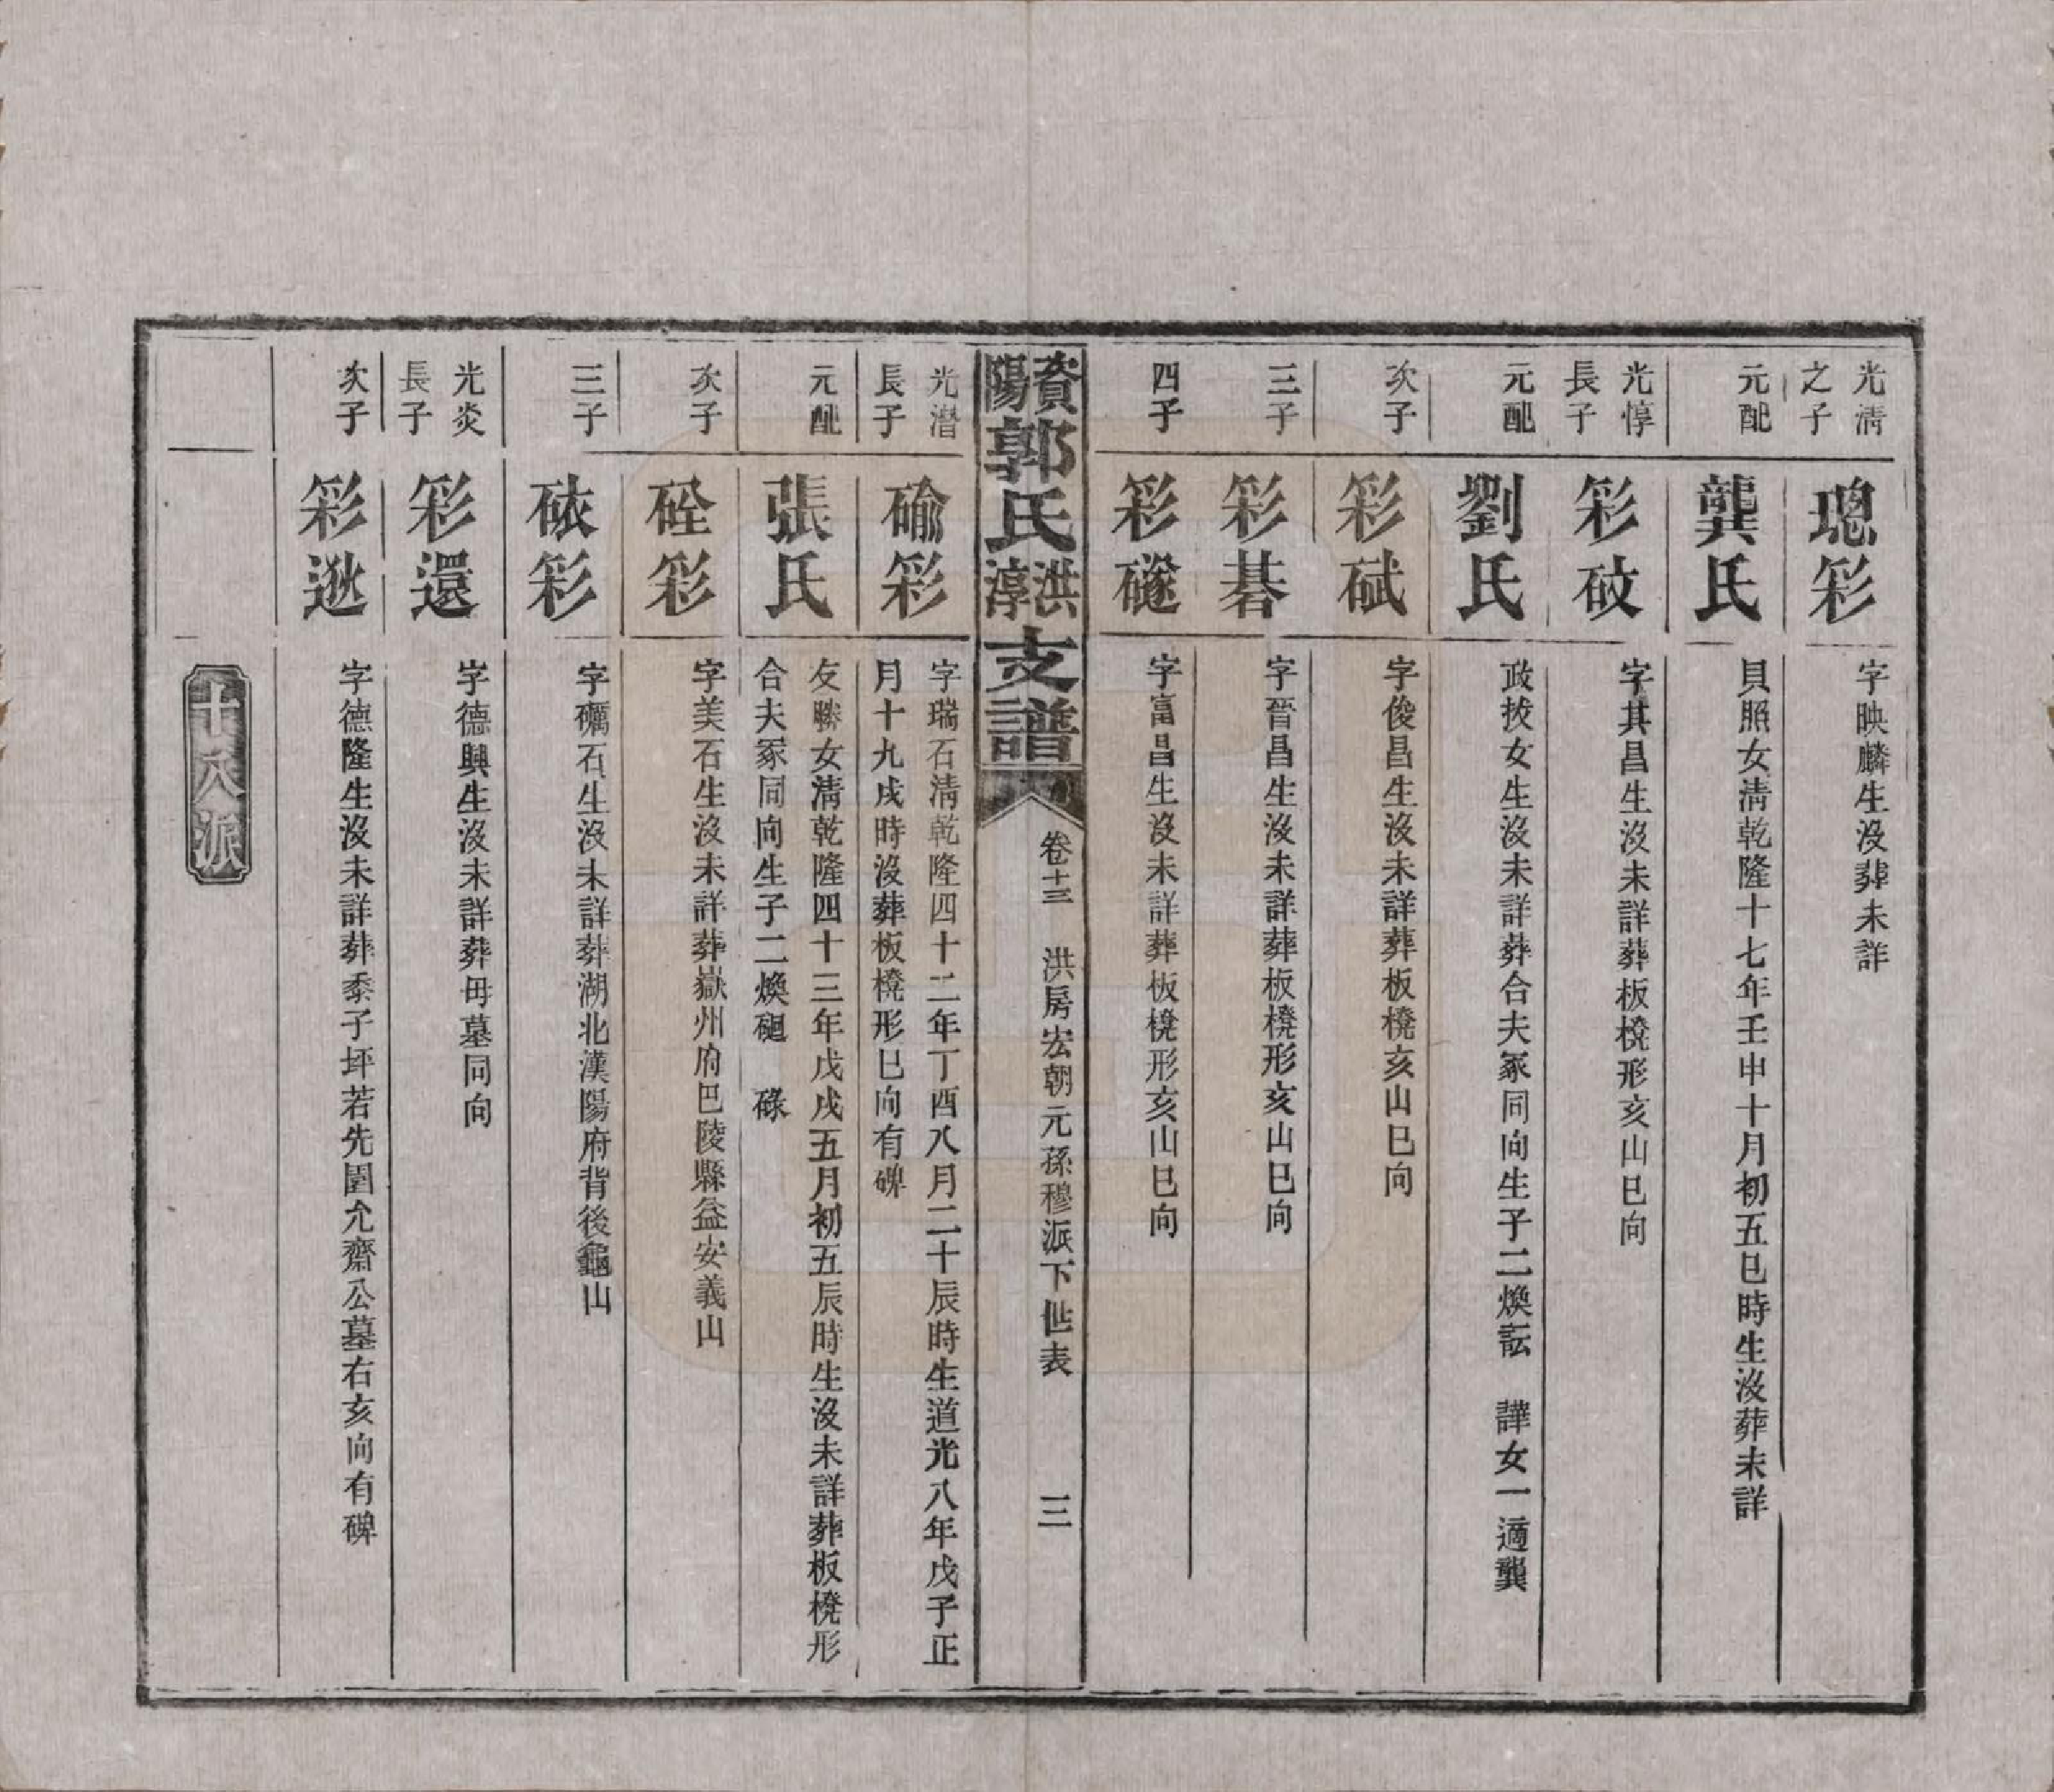 光清
之子
璁彩
字映麟生沒葬未詳
元配
龔氏
貝照女清乾隆十七年壬申十月初五巳時生沒葬未詳
光惇
長子
彩砇
字其昌生沒未詳葬板櫈形亥山巳向
元配
劉氏
政拔女生沒未詳葬合夫冢同向生子二煥䛘 譁女一適龔
次子
彩碔
字俊昌生沒未詳葬板櫈亥山巳向
三子
彩碁
字晉昌生沒未詳葬板櫈形亥山巳向
四子
彩䃍
字富昌生沒未詳葬板櫈形亥山巳向
資陽郭氏洪淳支譜
卷十三 洪房宏朝元孫穆派下世表 三
光潛
長子
碖彩
字瑞石清乾隆四十二年丁酉八月二十辰時生道光八年戊子正
月十九戌時沒葬板櫈形巳向有碑
元配
張氏
友勝女清乾隆四十三年戊戌五月初五辰時生沒未詳葬板櫈形
合夫冢同向生子二煥 碌
次子
硂彩
字美石生沒未詳葬嶽州府巴陵縣益安義山
三子
䃜彩
字礪石生沒未詳葬湖北漢陽府背後龜山
光炎
長子
彩還
字德興生沒未詳葬毋墓同向
次子
彩逖
字德隆生沒未詳葬黍子坪若先園允齋公墓右亥向有碑
十八派